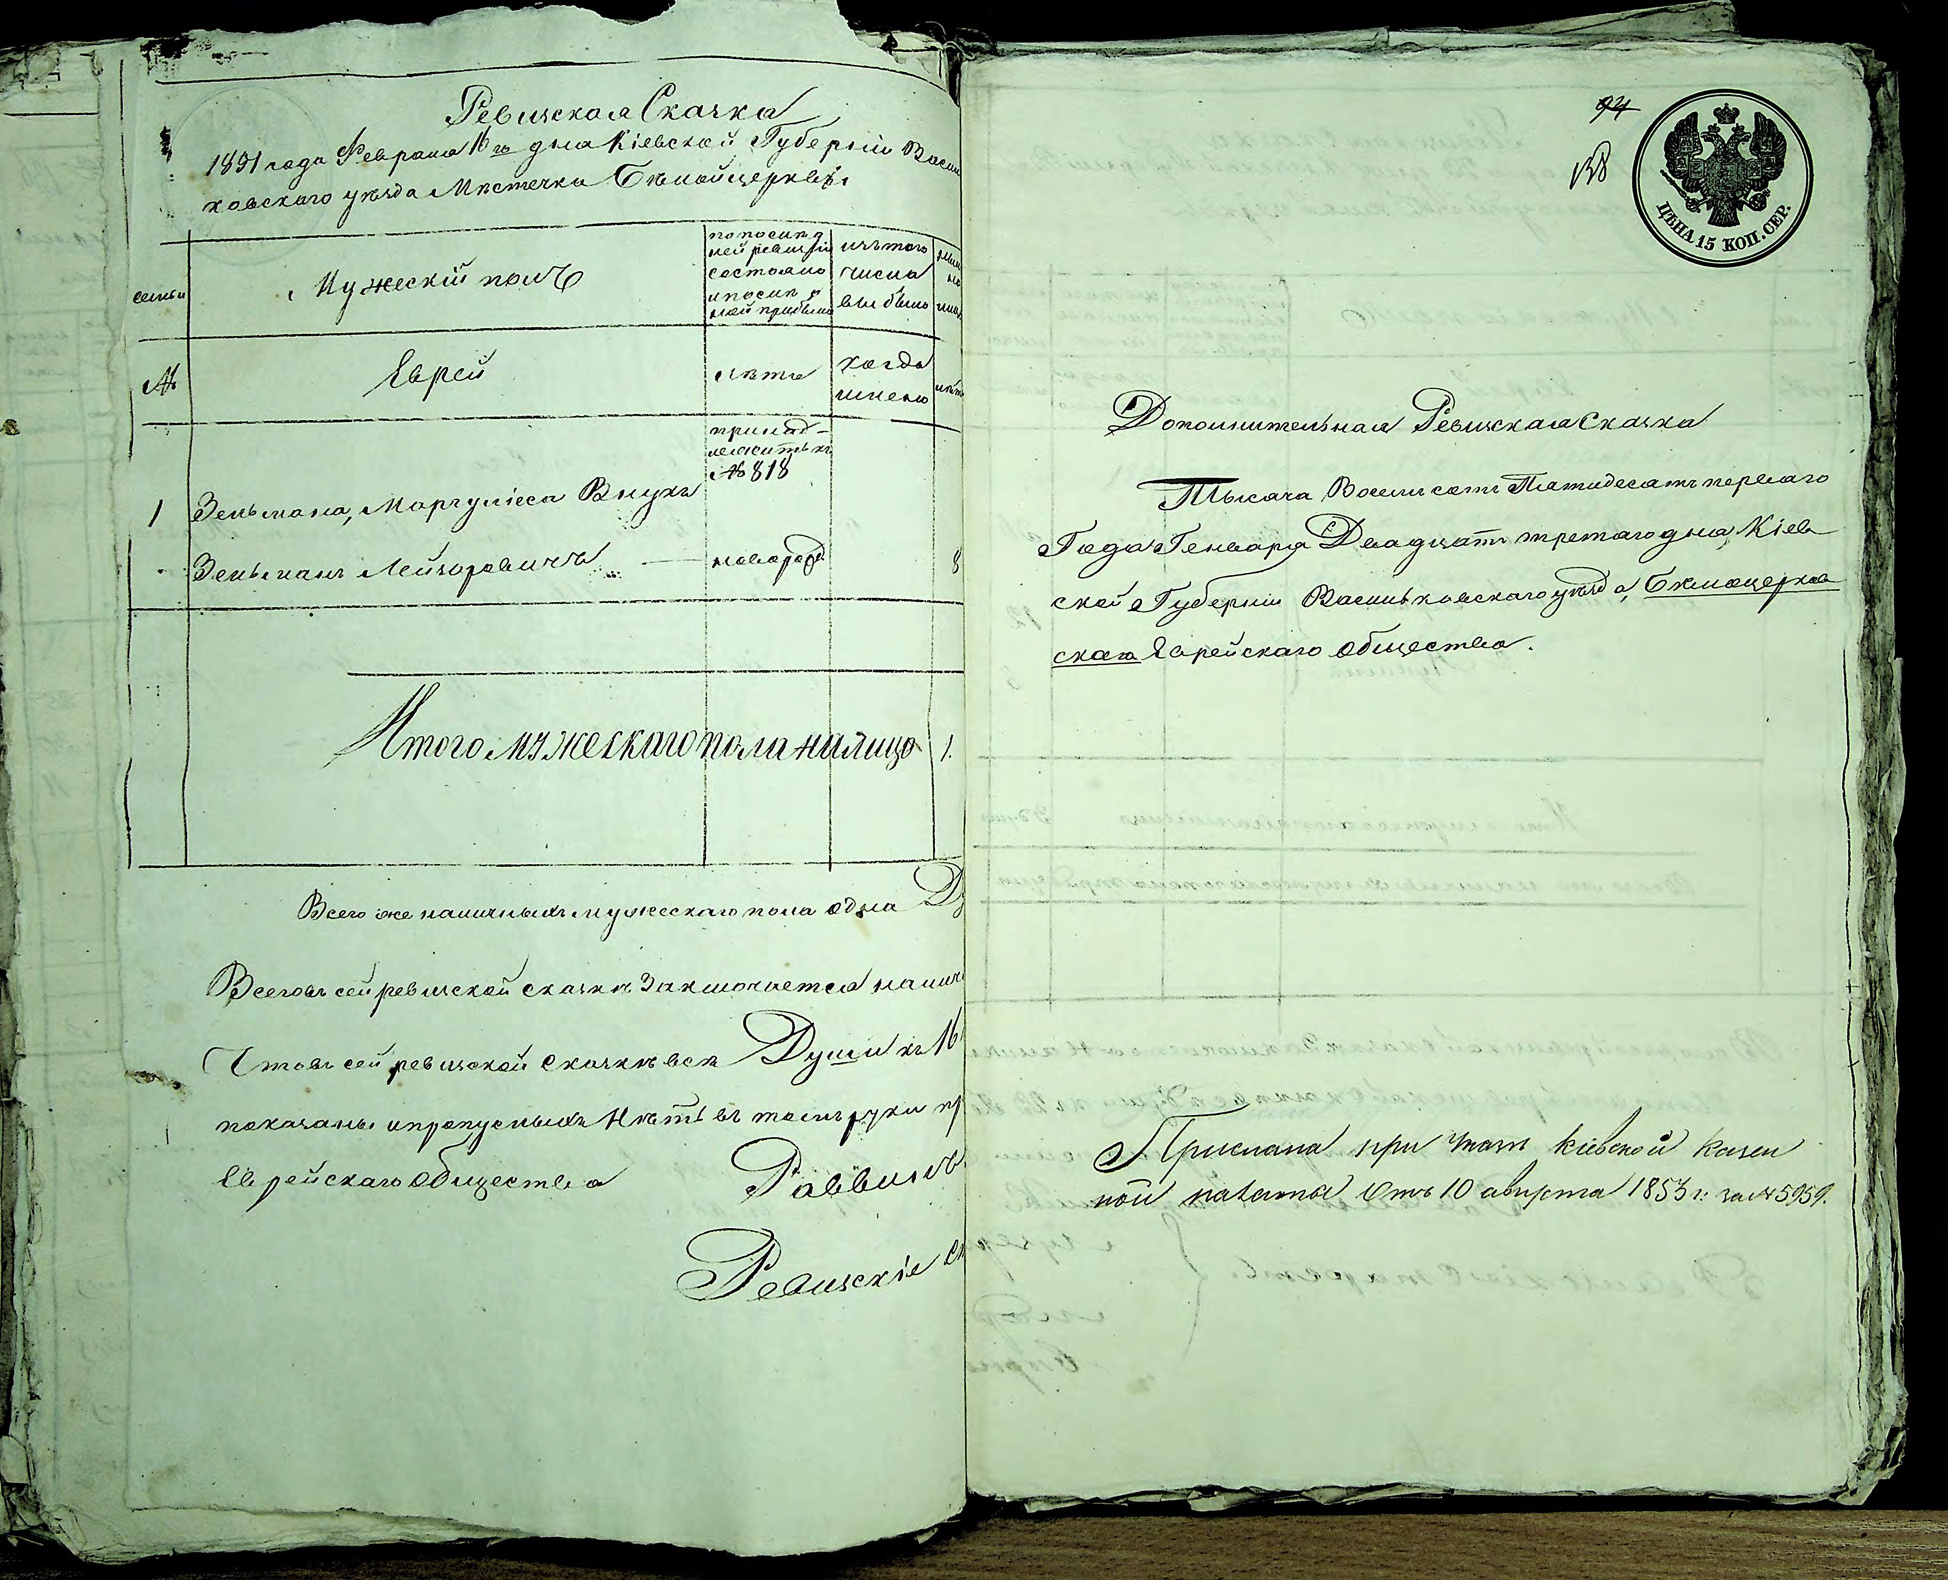 Ревизская Сказка
1851 года Февраля 16го дня Кіевской Губерніи Василь
ковского уѣзда Мѣстечка Бѣлойцеркви
семьи
Мужескій полъ
по послѣд
ней ревизіи
состояло
и послѣ о
ной прибыло
изъ того
числа
выбыло
№
Еврей
лѣта
когда
имено
лѣта
принад-
лежитъ къ
№ 818
1 Зельмана, Маргулѣса Внукъ
Зельманъ Лейзоровичъ новорож 8
Итого мужескаго пола налицо 1.
Всего же наличныхъ мужескаго пола одна Ду
Всего въ сей ревизской сказкѣ Заключается налич
Что въ сей ревизской сказкѣ всѣ Души къ 16
показаны и пропускныхъ Нѣтъ въ томъ руки пр
Еврейскаго Общества Раввинъ
Ревизскіе Ск
94
ЦѢНА 15 КОП. СЕР.
Дополнительная Ревизская Сказка
Тысяча Восемьсотъ Пятидесятъ перваго
Года Генваря Двадцать третяго дня, Кіев
ской Губерніи Васильковскаго уѣзда, Бѣлоцерков
скаго Еврейскаго Общества.
Прислана при указѣ Кіевской Казен
ной палаты Отъ 10 августа 1853 г: за № 5959.